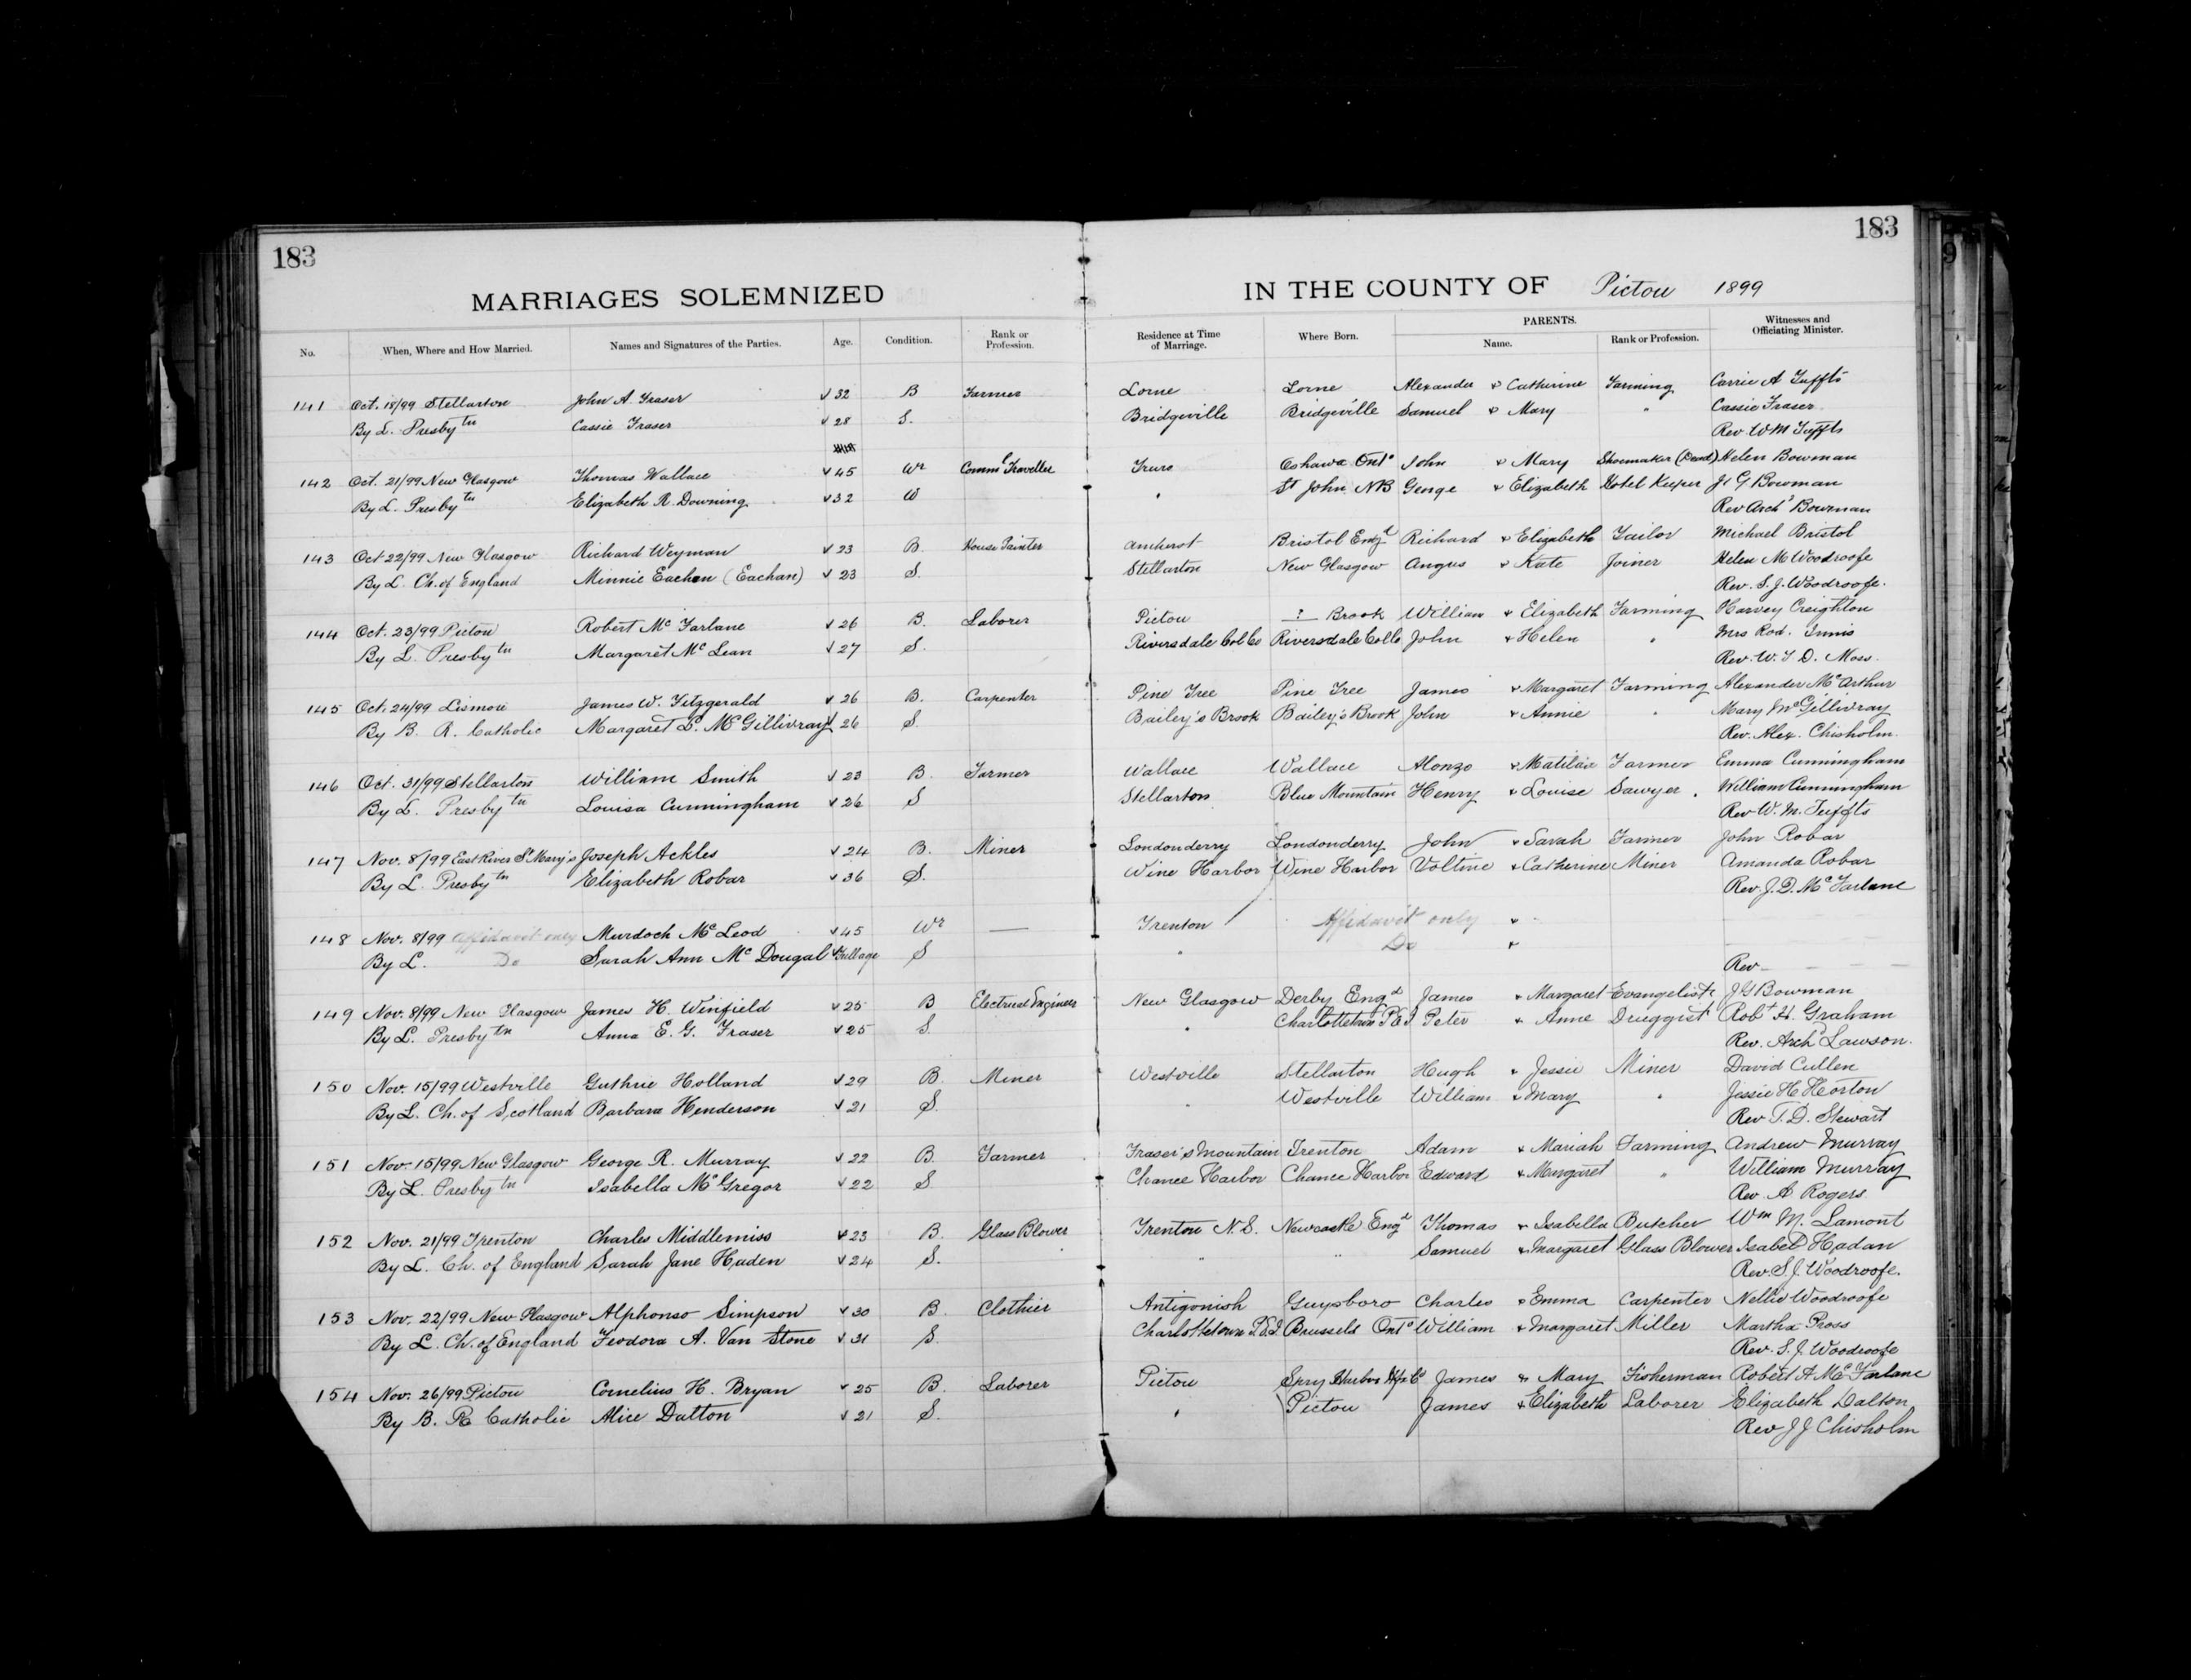 183
183
MARRIAGES SOLEMNIZED IN THE COUNTY OF Pictou 1899
No. When, Where and How Married. Names and Signatures of the Parties. Age. Condition. Rank or Profession. Residence at Time of Marriage. Where Born. PARENTS. Name. Rank or Profession. Witnesses and Officiating Minister.
141 Oct. 18/99 Stellarton John A. Fraser √ 32 B Farmer Lorne Lorne Alexander & Catherine Farming Carrie A Tuffts
By L. Presbytn Cassie Fraser √ 28 S. Bridgeville Bridgeville Samuel & Mary " Cassie Fraser
Rev. W M Tuffts
142 Oct. 21/99 New Glasgow Thomas Wallace √ 45 Wr Comml Traveller Truro Oshawa Onto John & Mary Shoemaker (Dead) Helen Bowman
By L. Presbytn Elizabeth R. Downing √ 32 W " St John NB George & Elizabeth Hotel Keeper J G Bowman
Rev Archd Bowman
143 Oct 22/99 New Glasgow Richard Weyman √ 23 B. House Painter Amherst Bristol Engd Richard & Elizabeth Tailor Michael Bristol
By L. Ch. of England Minnie Eachen (Eachan) √ 23 S. Stellarton New Glasgow Angus & Kate Joiner Helen M Woodroofe
Rev. S. J. Woodroofe.
144 Oct. 23/99 Pictou Robert McFarlane √ 26 B. Laborer Pictou ? Brook William & Elizabeth Farming Harvey Creighton
By L. Presbytn Margaret McLean √ 27 S. Riversdale Col Co Riversdale Col Co John & Helen " Mrs Rod. Innis
Rev. W. T. D. Moss.
145 Oct. 24/99 Lismore James W. Fitzgerald √ 26 B. Carpenter Pine Tree Pine Tree James & Margaret Farming Alexander McArthur
By B. R. Catholic Margaret L. McGillivray √ 26 S. Bailey's Brook Bailey's Brook John & Annie " Mary McGillivray
Rev. Alex. Chisholm.
146 Oct. 31/99 Stellarton William Smith √ 23 B. Farmer Wallace Wallace Alonzo & Matilda Farmer Emma Cunningham
By L. Presbytn Louisa Cunningham √ 26 S Stellarton Blue Mountain Henry & Louise Sawyer. William Cunningham
Rev W. M. Tuffts
147 Nov. 8/99 East River St Mary's Joseph Ackles √ 24 B. Miner Londonderry Londonderry John & Sarah Farmer John Robar
By L. Presbytn Elizabeth Robar √ 36 S. Wine Harbor Wine Harbor Voltine & Catherine Miner Amanda Robar
Rev. J. D. McFarlane
148 Nov. 8/99 Affidavit only Murdoch McLeod √ 45 Wr — Trenton Affidavit only &
By L. Do Sarah Ann McDougal √ Full age S " Do &
Rev —
149 Nov. 8/99 New Glasgow James H. Winfield √ 25 B Electrical Engineer New Glasgow Derby Engd James & Margaret Evangelist J G Bowman
By L. Presbytn Anna E. G. Fraser √ 25 S. " Charlottetown P E I Peter & Anne Druggist Robt H. Graham
Rev. Archd Lawson.
150 Nov. 15/99 Westville Guthrie Holland √ 29 B. Miner Westville Stellarton Hugh & Jessie Miner David Cullen
By L. Ch. of Scotland Barbara Henderson √ 21 S. " Westville William & Mary " Jessie H Horton
Rev T. D. Stewart
151 Nov. 15/99 New Glasgow George R. Murray √ 22 B. Farmer Fraser's Mountain Trenton Adam & Mariah Farming Andrew Murray
By L. Presbytn Isabella McGregor √ 22 S. Chance Harbor Chance Harbor Edward & Margaret " William Murray
Rev A Rogers
152 Nov. 21/99 Trenton Charles Middlemiss √ 23 B. Glass Blower Trenton N. S. Newcastle Engd Thomas & Isabella Butcher Wm M. Lamont
By L. Ch. of England Sarah Jane Haden √ 24 S. " " Samuel & Margaret Glass Blower Isabel Hadan
Rev. S. J. Woodroofe.
153 Nov. 22/99 New Glasgow Alphonso Simpson √ 30 B. Clothier Antigonish Guysboro Charles & Emma Carpenter Nellie Woodroofe
By L. Ch. of England Feodora A. Van Stone √ 31 S. Charlottetown P.E.I Brussels Onto William & Margaret Miller Martha Pross
Rev. S. J. Woodroofe
154 Nov. 26/99 Pictou Cornelius H. Bryan √ 25 B. Laborer Pictou Spry Harbor Hfx Co James & Mary Fisherman Robert A McFarlane
By B. R Catholic Alice Dalton √ 21 S. " Pictou James & Elizabeth Laborer Elizabeth Dalton
Rev J J Chisholm